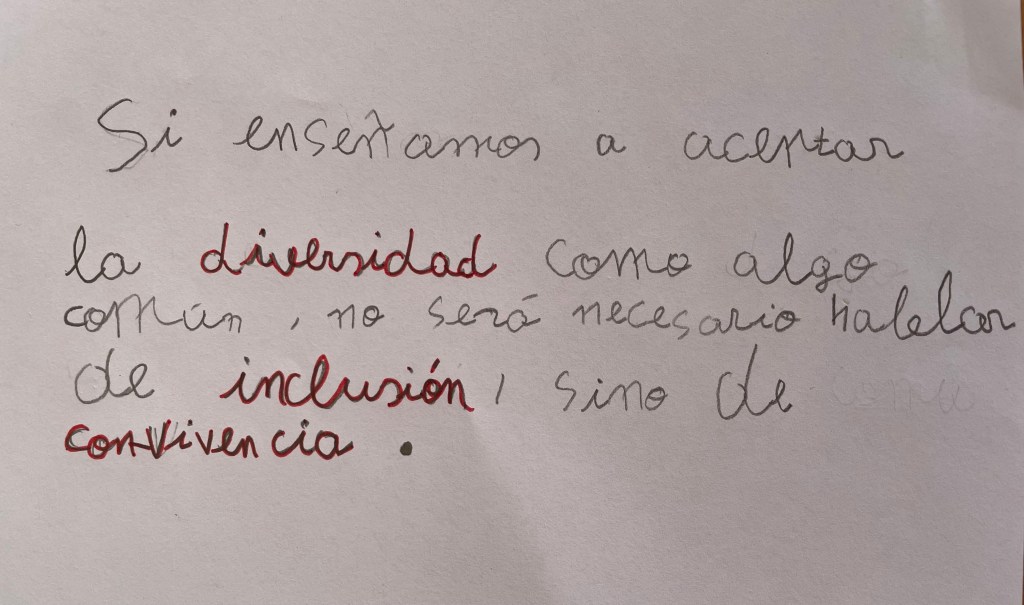 Si enseñamos a aceptar
la diversidad como algo
común, no será necesario hablar
de inclusión, sino de
convivencia.